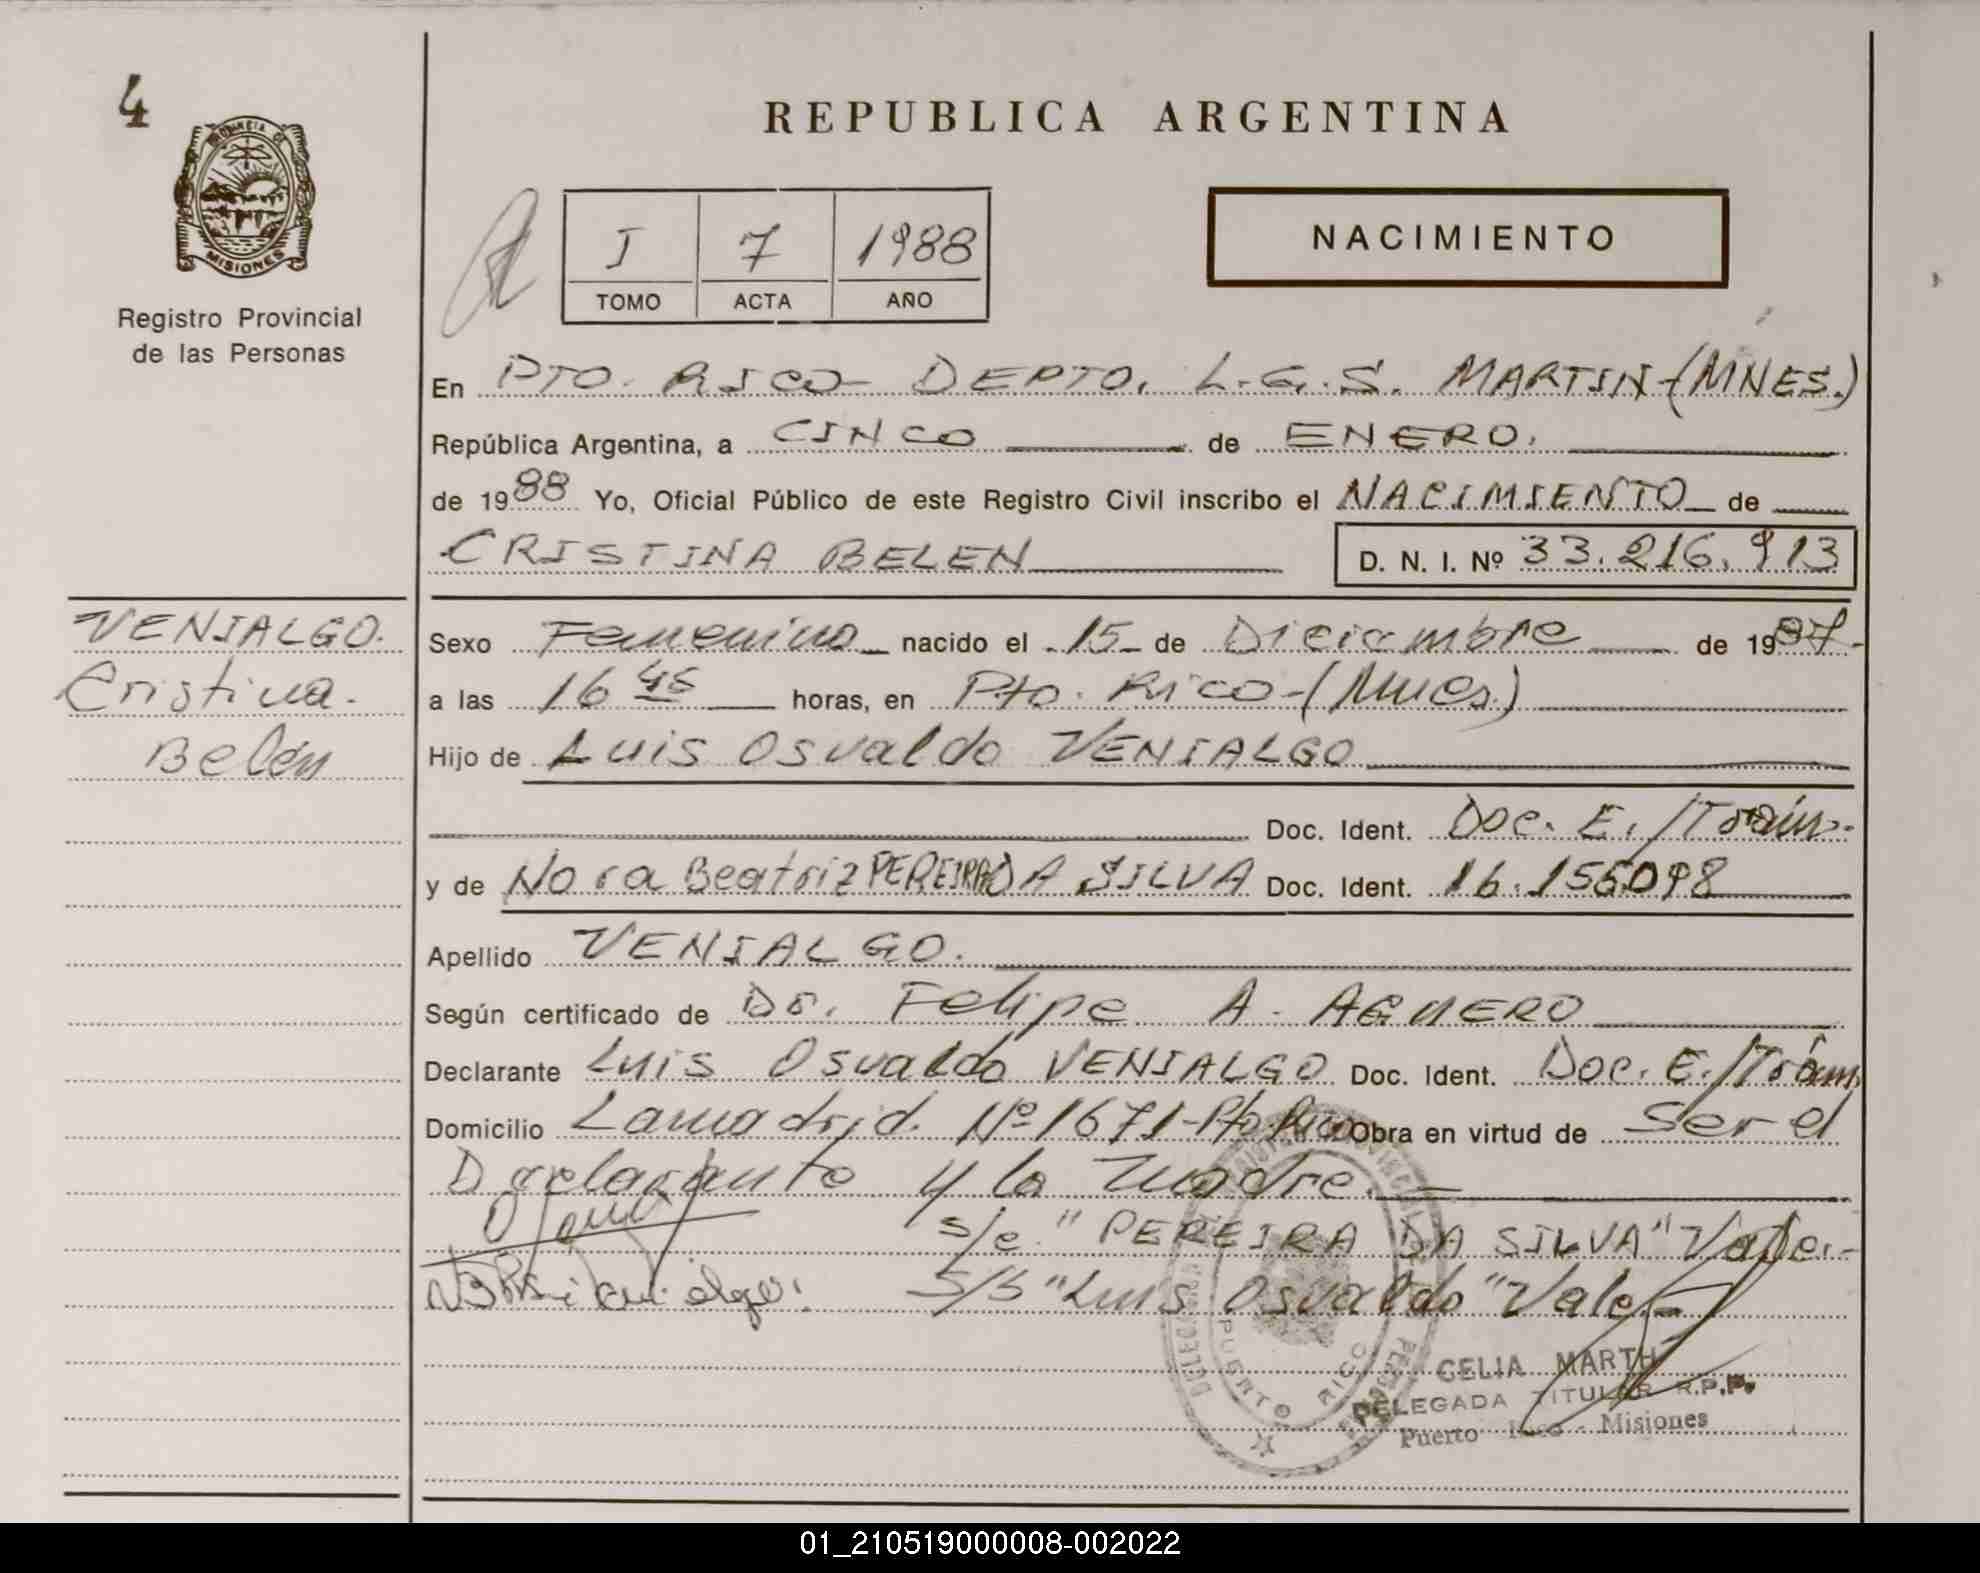 4
PROVINCIA DE
MISIONES
Registro Provincial
de las Personas
REPUBLICA ARGENTINA
I 7 1988
TOMO ACTA AÑO
NACIMIENTO
En PTO. RICO - DEPTO. L.G.S. MARTIN - (MNES.)
República Argentina, a CINCO de ENERO.
de 1988 Yo, Oficial Público de este Registro Civil inscribo el NACIMIENTO de
CRISTINA BELEN D. N. I. Nº 33.216.913
VENIALGO.
Cristina.
Belén
Sexo Femenino nacido el 15 de Diciembre de 1987.
a las 16 45 horas, en Pto. Rico - (Mnes.)
Hijo de Luis Osvaldo VENIALGO
Doc. Ident. Doc. E./Trám.
y de Nora Beatriz PEREIRA DA SILVA Doc. Ident. 16.156098
Apellido VENIALGO.
Según certificado de Dr. Felipe A. AGUERO
Declarante Luis Osvaldo VENIALGO Doc. Ident. Doc. E./Trám.
Domicilio Lamadrid. Nº 1671 - Pto. Rico Obra en virtud de Ser el
Declarante y la Madre.
s/e. "PEREIRA DA SILVA" Vale.-
S/S "Luis Osvaldo" Vale.-
PUERTO RICO
CELIA MARTH
DELEGADA TITULAR R.P.P.
Puerto Rico - Misiones
01_210519000008-002022